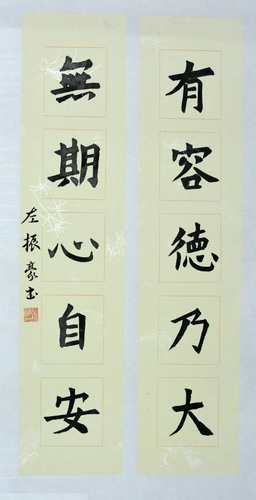 有容德乃大
無期心自安
左振豪書